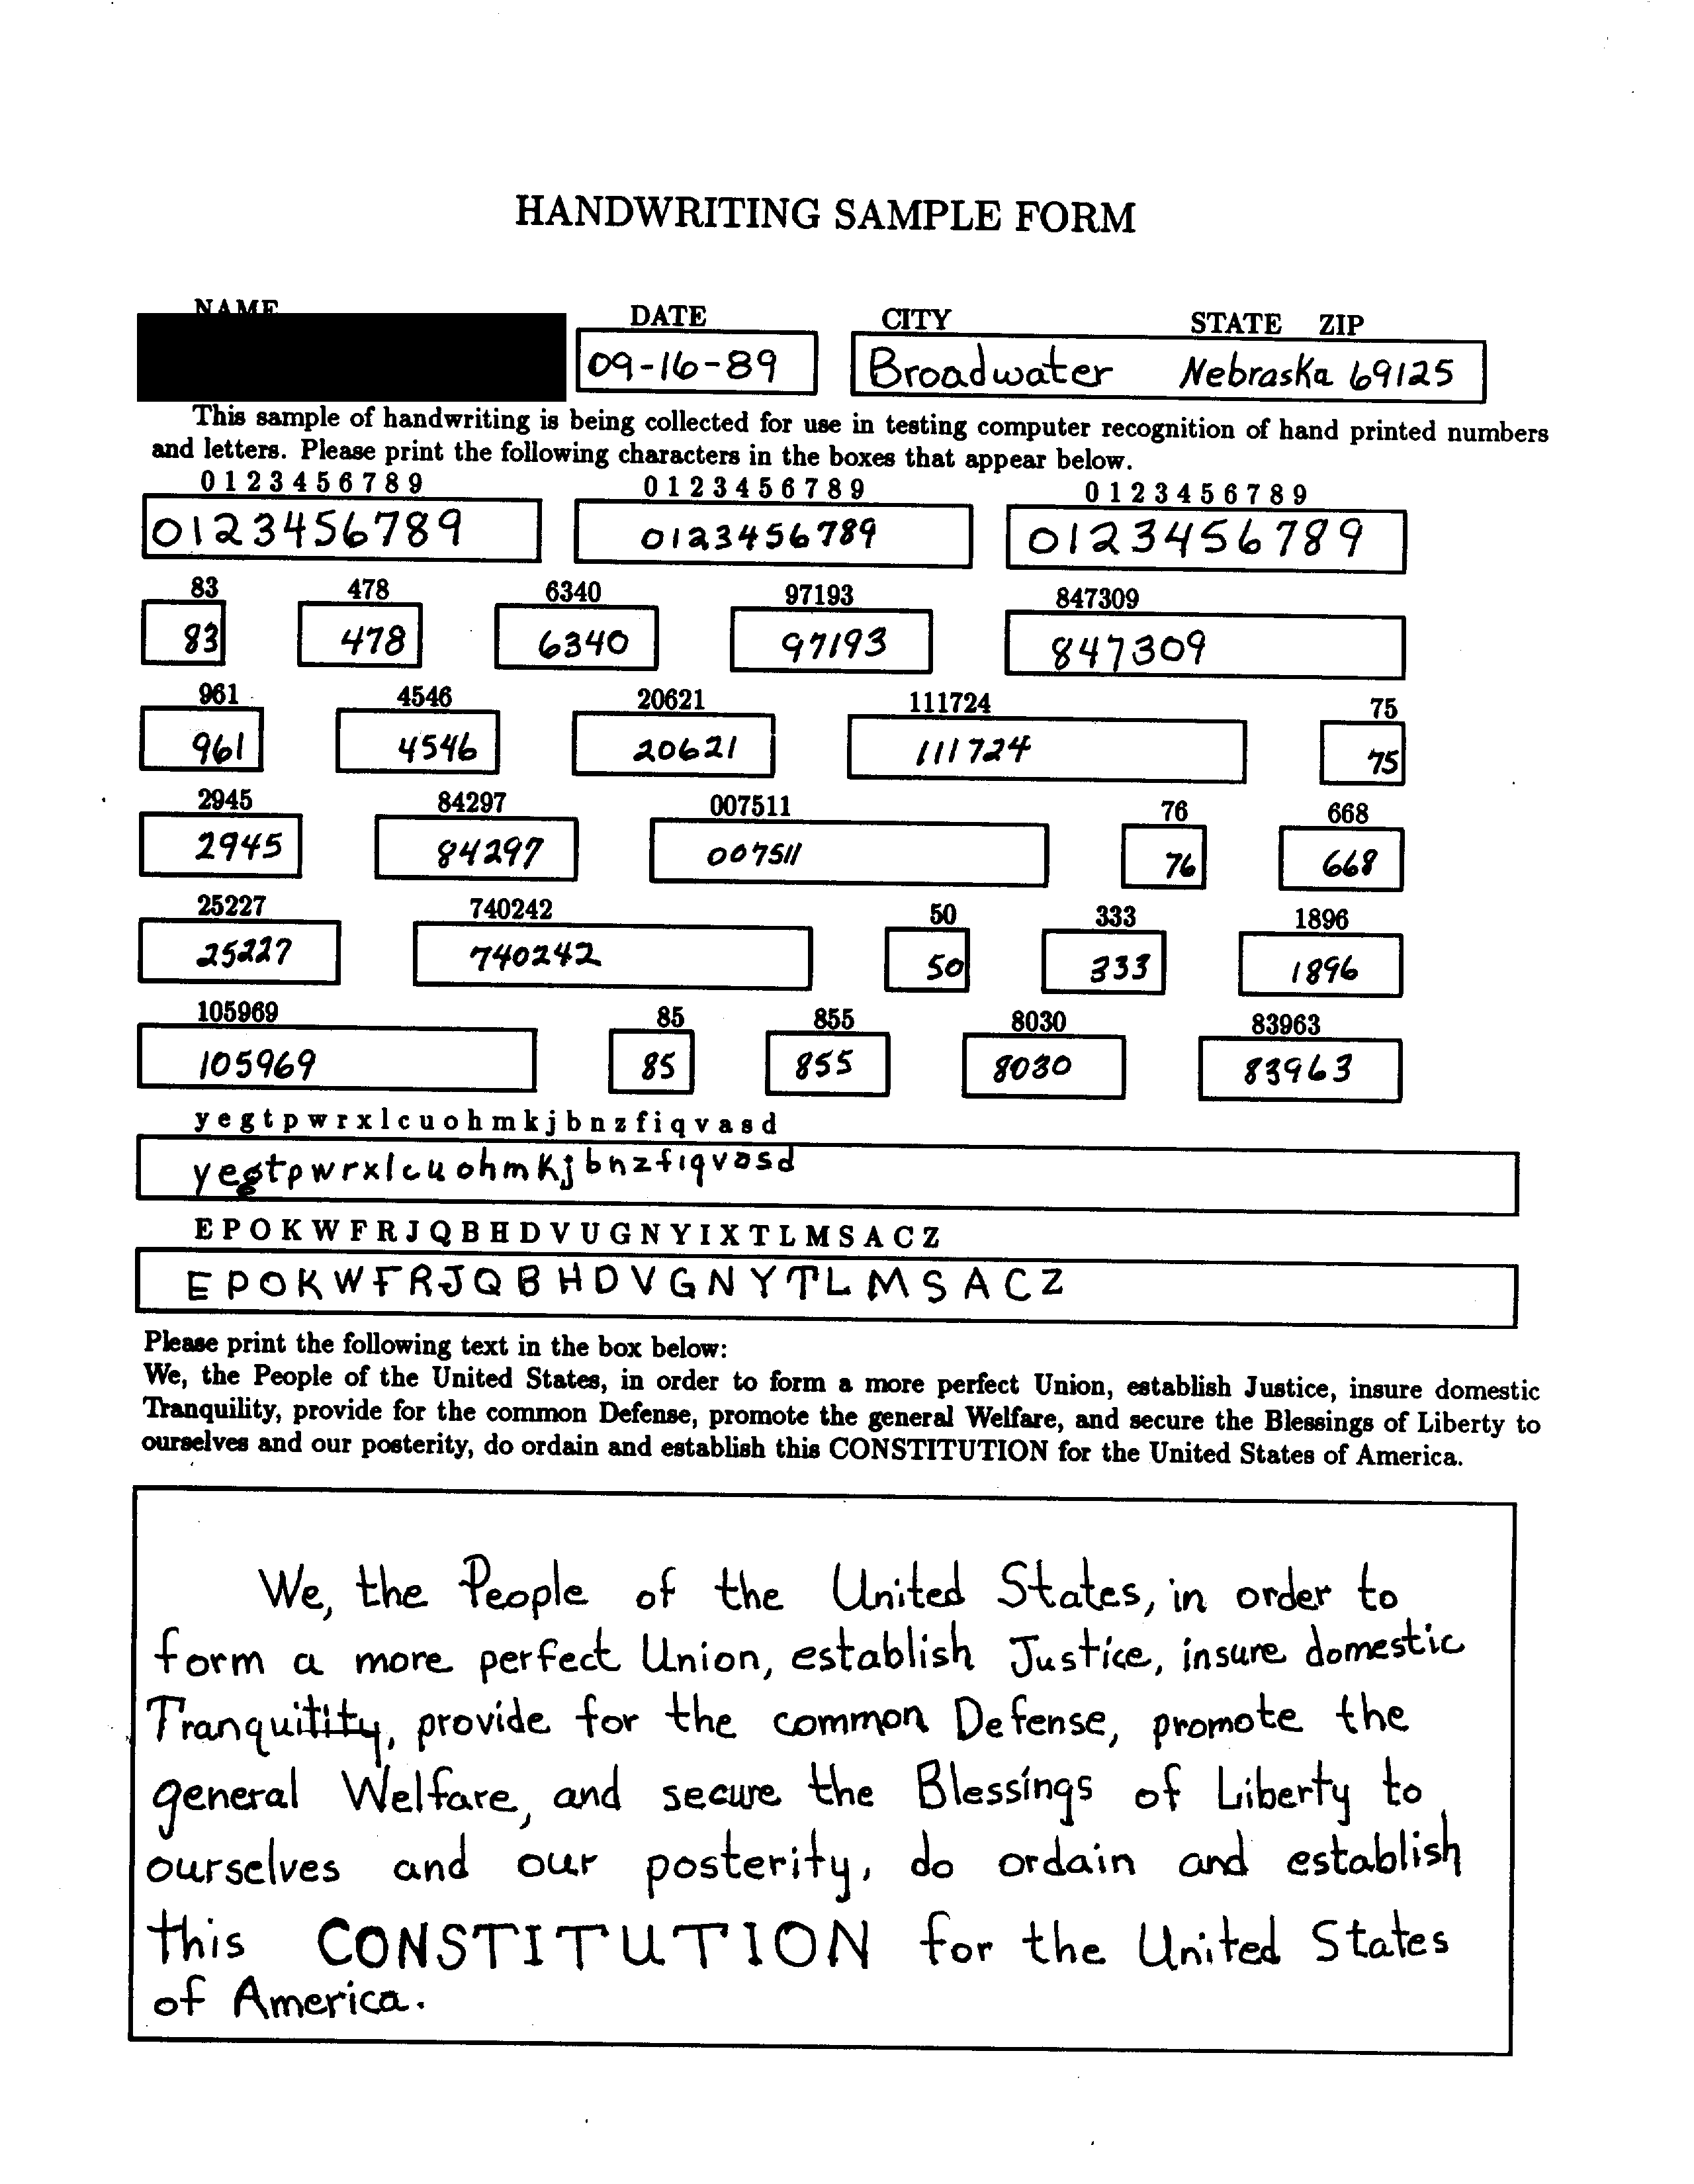 HANDWRITING SAMPLE FORM
NAME DATE CITY STATE ZIP
09-16-89 Broadwater Nebraska 69125
This sample of handwriting is being collected for use in testing computer recognition of hand printed numbers
and letters. Please print the following characters in the boxes that appear below.
0 1 2 3 4 5 6 7 8 9 0 1 2 3 4 5 6 7 8 9 0 1 2 3 4 5 6 7 8 9
0123456789 0123456789 0123456789
83 478 6340 97193 847309
83 478 6340 97193 847309
961 4546 20621 111724 75
961 4546 20621 111724 75
2945 84297 007511 76 668
2945 84297 007511 76 668
25227 740242 50 333 1896
25227 740242 50 333 1896
105969 85 855 8030 83963
105969 85 855 8030 83963
y e g t p w r x l c u o h m k j b n z f i q v a s d
yegtpwrxlcuohmkjbnzfiqvasd
E P O K W F R J Q B H D V U G N Y I X T L M S A C Z
E P O K W F R J Q B H D V G N Y T L M S A C Z
Please print the following text in the box below:
We, the People of the United States, in order to form a more perfect Union, establish Justice, insure domestic
Tranquility, provide for the common Defense, promote the general Welfare, and secure the Blessings of Liberty to
ourselves and our posterity, do ordain and establish this CONSTITUTION for the United States of America.
We, the People of the United States, in order to
form a more perfect Union, establish Justice, insure domestic
Tranquitity, provide for the common Defense, promote the
general Welfare, and secure the Blessings of Liberty to
ourselves and our posterity, do ordain and establish
this CONSTITUTION for the United States
of America.